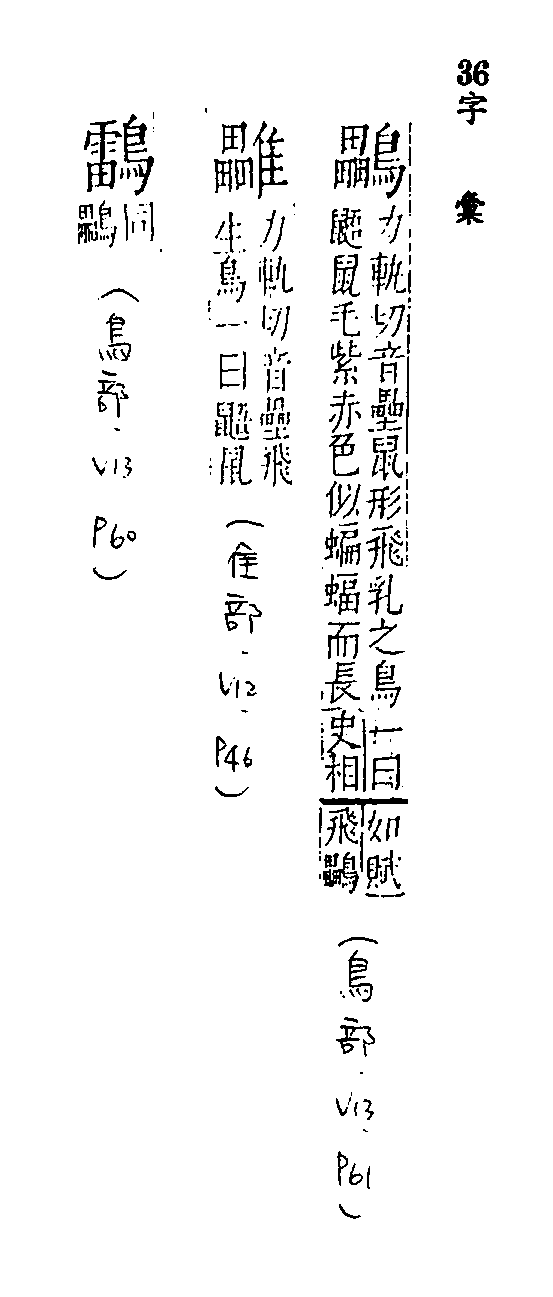 36字彙
鸓
力軌切音壘鼠形飛乳之鳥一曰
鼯鼠毛紫赤色似蝙蝠而長史相
如賦
飛鸓
(鳥部.V13.P61)
力軌切音壘飛
生鳥一曰鼯鼠
(隹部.V12.P46)
同
鸓
(鳥部.V13 P60)